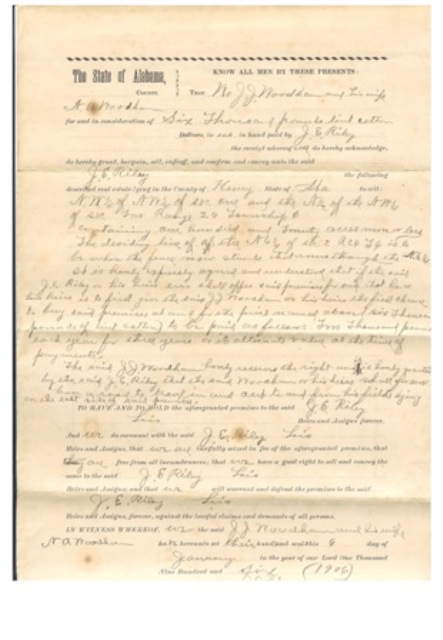 The State of Alabama,
KNOW ALL MEN BY THESE PRESENTS:
County. That We J J Woodham and his wife
N A Woodham
for and in consideration of Six Thousand pounds lint cotton
Dollars, to us in hand paid by J. E. Riley
the receipt whereof we do hereby acknowledge,
do hereby grant, bargain, sell, enfeoff, and confirm and convey unto the said
J. E. Riley the following
described real estate lying in the County of Henry State of Ala to-wit:
N.W¼ of N.W¼ of sec one and the N½ of the N.W¼
of sec Two Range 26 Township 6
containing one hundred and Twenty acres more or less
The deciding line of
be when the fence now stands
It is hereby expressly agreed and understood that if the said
J. E. Riley or his heirs ever shall offer said premises for sale that he or
his heirs is to first give the said J J Woodham or his heirs the first chance
to buy said premises at and for the price named above (six Thousand
pounds of lint cotton) to be paid as follows: Two Thousand pounds
each year for three years or its value at the time of
payments.
The said J J Woodham hereby reserves the right
by the said J. E. Riley that the said Woodham or his heirs shall
have a road to and from his fields lying
on the east side of said premises
TO HAVE AND TO HOLD the aforegranted premises to the said J. E. Riley
his Heirs and Assigns forever.
And we do covenant with the said J. E. Riley his
Heirs and Assigns, that we are lawfully seized in fee of the aforegranted premises, that
they are free from all incumbrances; that we have a good right to sell and convey the
same to the said J. E. Riley his
Heirs and Assigns, and that we will warrant and defend the premises to the said
J. E. Riley his
Heirs and Assigns, forever, against the lawful claims and demands of all persons.
IN WITNESS WHEREOF, we the said J J Woodham and his wife
N A Woodham have hereunto set their hand and this 6 day of
January in the year of our Lord One Thousand
Nine Hundred and six (1906)